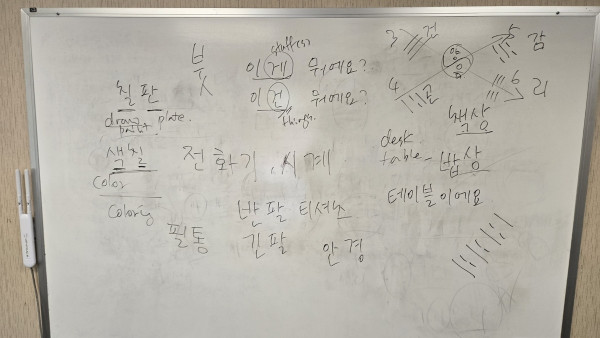 붓
stuff(s)
이게 뭐에요?
이건 뭐에요?
things.
칠판
draw plate.
paint
색칠
color
coloring
전화기, 시계
반팔 티셔츠
긴팔
필통
안경
3 건
5 감
4 곤
6 리
책상
desk
table - 밥상
테이블이에요